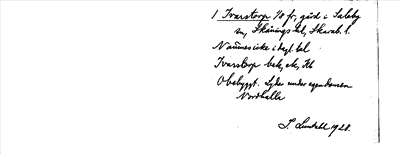 1 Ivarstorp 1/8 fr, gård i Saleby
sn, Skånings hd, Skarab. l.
Namnes icke i dagl. tal
Ivarstorp bek, ek, Hb
Obebyggt. Lyder under egendomen
Nordhalla
S. Lundahl 1928.